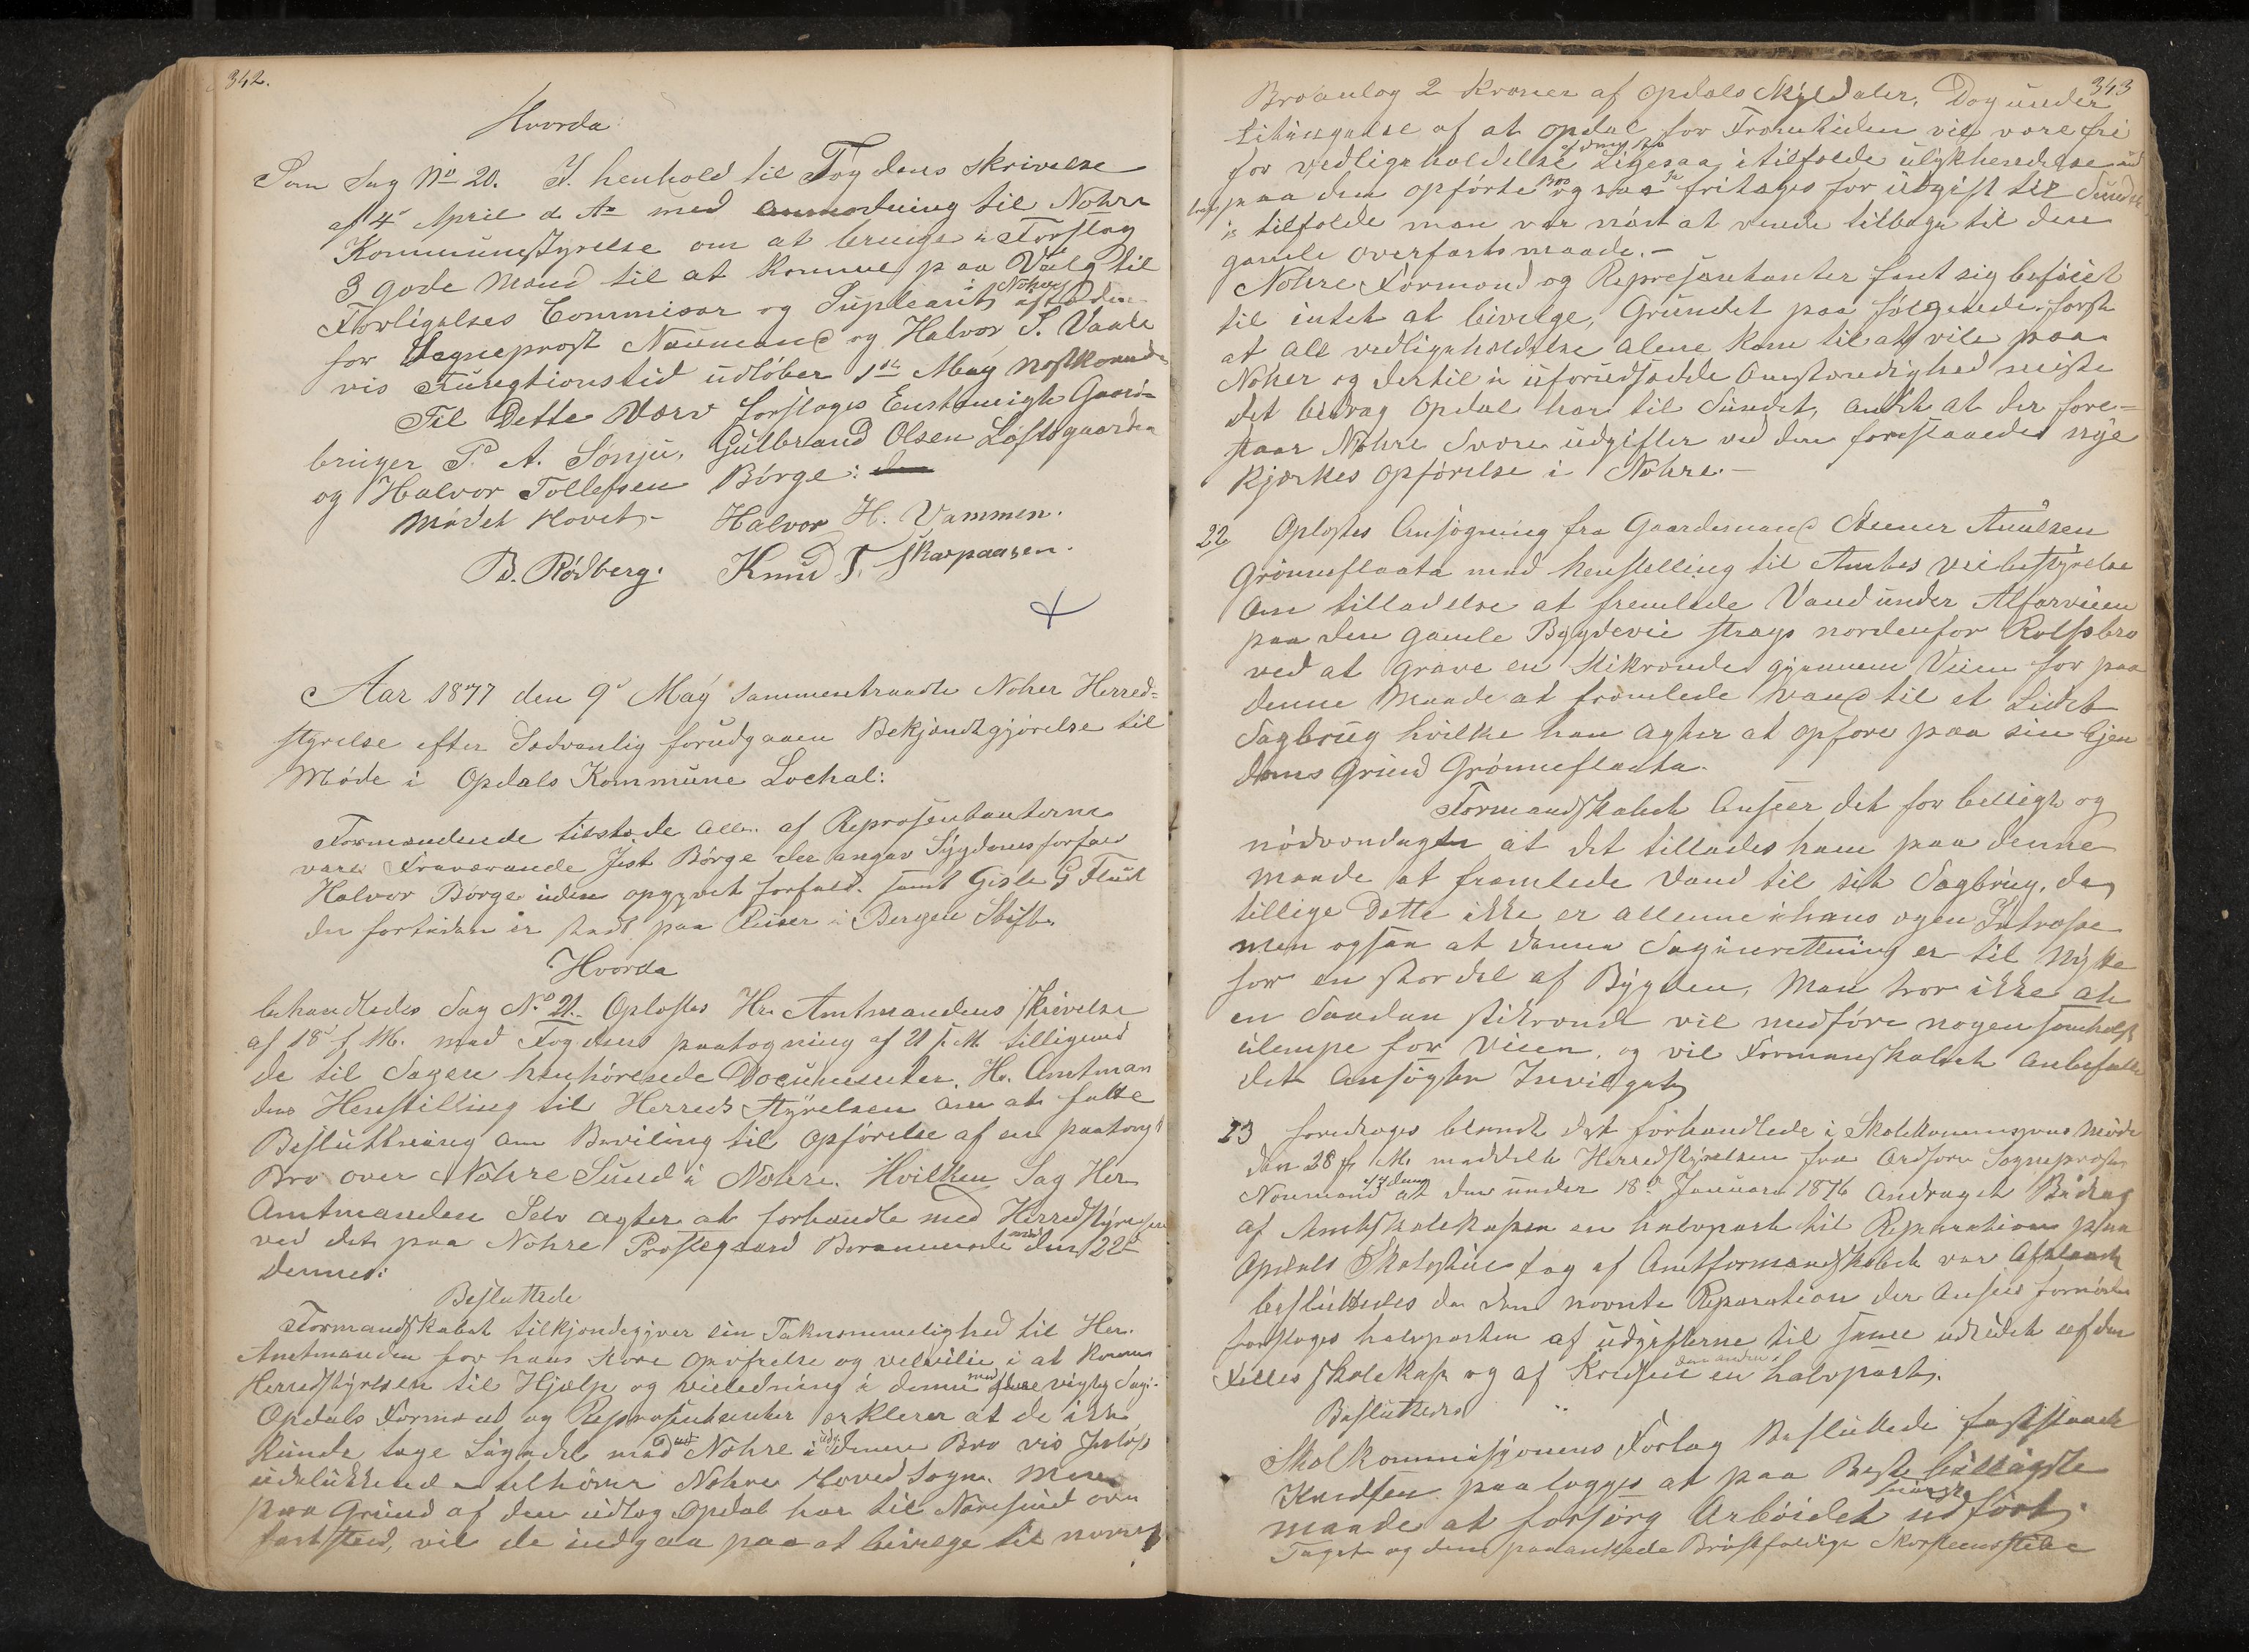 342.
Hvorda
Som Sag No 20. I. henhold til Fogdens skrivelse
af 4de April d. Ar med Anmodning til Nohre
Kommunestyrelse om at bringe i Forslag
3 gode Mænd til at komme paa Valg til
Forligelses Commisær og Supleant i Nohre
for Sogneprost Neumand og Halvor S. Vaale
vis Fungtionstid udløber 1ste May næstkommende
Til Dette Værv forslages Enstemigh Gaard-
bruger P. A. Sønju, Gulbrand Olsen Løftsgaarden
og Halvor Tollefsen Børge:
Mødet Hævet
Halvor H. Vammen.
B. Rødberg. Knud T. Skarpaasen.
Aar 1877 den 9de May Sammentraadte Noher Herred-
styrelse efter Sædvanlig forudgaaen Bekjændtgjørelse til
Møde i Opdals Kommune Lochal:
Formændende tilstæde alle. af Repræsentanterne
vare Fraværande Jist Børge der angav Sygdoms forfald
Halvor Børge uden opgyvet forfald. samt Gisle G Fluit
der fortiden er stedt paa Reiser i Bergen Stift.
Hvorda
behandledes Sag No 21. Oplæstes Hr. Amtmandens skrivelse
af 18de f. M. med Fogdens paategning af 21 f. M. tilligemed
de til Sagen henhørende Documenter. Hr. Amtman
dens Henstilling til Herreds Styrelsen om at fatte
Besluttning om Beviling til Opførelse af en paatængt
Bro over Nohre Sund i Nohre. Hvilken Sag Her
Amtmanden Selv agter at forhandle med Herredstyrelsen
ved det paa Nohre Prostegaard Beramende møde den 22de
Dennes:
Besluttede
Formandskabet tilkjendegjver sin Taknæmmelighed til Her.
Amtmanden for hans store opofrelse og velvilie i at komme
Herredstyrelsen til Hjælp og vieledning i denne med flere vigtig Sag.
Opdals Formænd og Repræsentanter erklerer at de ikke
kunde tage Ligedel med Nohre i denne Bro vis Indløs
udelukkende tilhører Nohre Hoved Sogn. Men
paa Grund af den udlæg Opdal har til Nøresund over
fartsted, vil de indgaa paa at bivelge til nævnt
343
Broanlæg 2 Kroner af Opdals Skyldaler, Dog under
betingelse af at Opdal for Fræmtiden vil være fri
for vedligeholdelse Ligesaa i tilfælde ulykhendelse
paa den opførte Bro og saa fritages for udgift til Sundet
is tilfælde man var nødt at vende tilbage til den
gamle overfarts maade.-
Nohre Formænd og Repræsentanter fant sig beføiet
til intet at bivelge, Grundet paa følgende: først
at all vedligeholdelse alene kom til at vile paa
Noher og dertil i uforudsadde Omstændighed miste
det bidrag Opdal har til Sundet, andet at der fore-
staar Nohre Svære udgifter ved den forestaaende nye
Kjærkes opførelse i Nohre.-
22 Oplæstes Ansøgning fra Gaardemand Steiner Knudsen
Grønneflaata med henstelling til Amtes Veibestyrelse
om tilladelse at fremlede Vand under Alfarveien
paa den gamle Bygdevei strags nordenfor Rolfsbro
ved at grave en Stikrende gjennem Veien for paa
denne Maade at fræmlede Vand til et Lidet
Sagbrug hvilke han agter at opføre paa sin Ejen
doms Grund Grønneflaata.
Formandskabet Anseer det for belligt og
nødvændigen at det tillades ham paa denne
Maade at fræmlede Vand til sit Sagbrug, da
tillige Dette ikke er allenne i hans egen Intræsse
men ogsaa at denne Saginrettning er til Nytte
for en stor del af Bygden, Man tror ikke at
en Saadan stikrende vil medføre nogen somhelst
ulempe for Veien, og vil Formanskabet anbefalle
det Ansøgte Invilget
23 foredroges blandt det forhandlede i Skolekommisjons Møde
den 28 f. M. meddelt Herredstyrelsen fra Ordfører Sogneprost
Neumand at den under 18de Januar 1876 andraget Bidrag
af Amtskolekassen en halvpart til Reparation paa
Opdals Skolestue tag af Amtformandskabet var Afslaaet
besluttedes da den nævnte Reparation der Ansees fornøden
forslages halvparten af udgifterne til samme udredet af den
Felles skolekasse og af Kredsen den anden en halvpart.
Besluttedes
Skolkommisjonens Forlag Besluttede fastslaaet
Kredsen paalægges at paa Beste billigste
maade at forsørg Arbeidet udført
Taget og den paaankede Brøstfældige Skorsteenstike